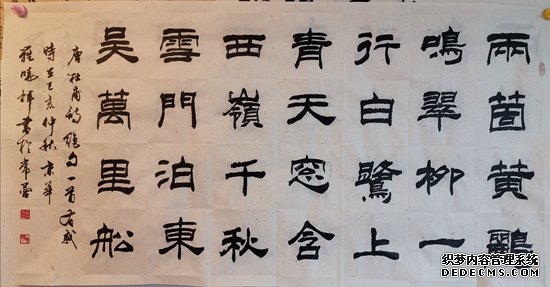 兩箇黃鸝
鳴翠柳一
行白鷺上
青天窓含
西嶺千秋
雲門泊東
吳萬里舩
唐杜甫詩絕句一首有感
時在己亥仲秋京華
書於常營
织梦内容管理系统
DEDECMS.COM